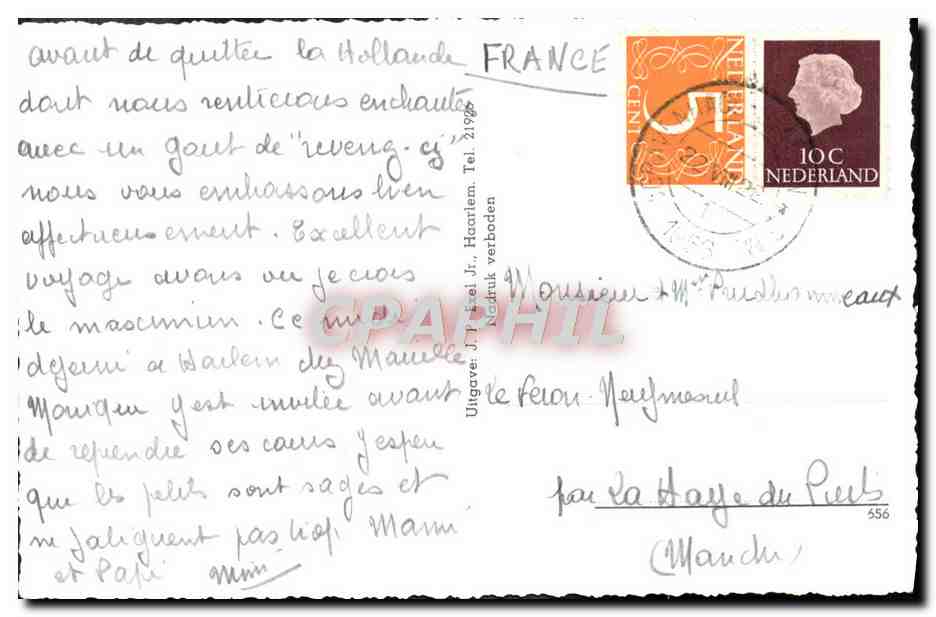 avant de quitter la Hollande
dont nous rentrerons enchantés
avec un gout de "reveng-ez"
nous vous embrassons bien
affectueusement. Excellent
voyage avons vu je crois
le maximum. Ce midi
déjeuné à Harlem chez Marcelle
Monique y est invitée avant
de reprendre ses cours J'espere
que les petits sont sages et
ne fatiguent pas trop Mami
et Papi Mimi
FRANCE
Monsieur & Mme
Le Feron. Neufmesnil
par La Haye du Puits
(Manche)
Uitgave: J. P. Exel Jr., Haarlem. Tel. 21926
Nadruk verboden
556
NEDERLAND
5
CENT
10 C
NEDERLAND
CPAPHIL